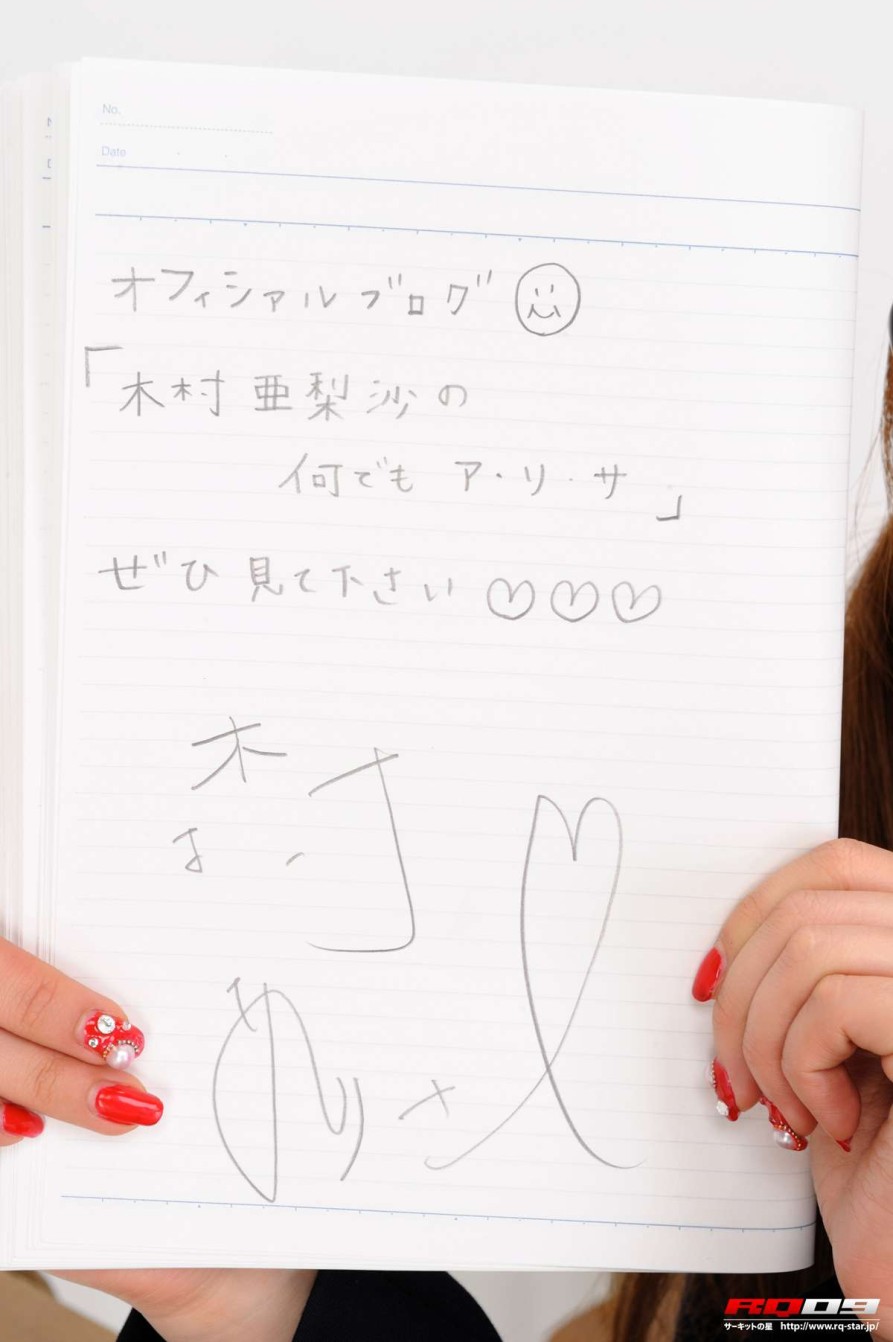 No.
Date
オフィシャルブログ
「木村亜梨沙の
何でも ア・リ・サ」
ぜひ見て下さい ♡♡♡
木村
RQ09
サーキットの星 http://www.rq-star.jp/